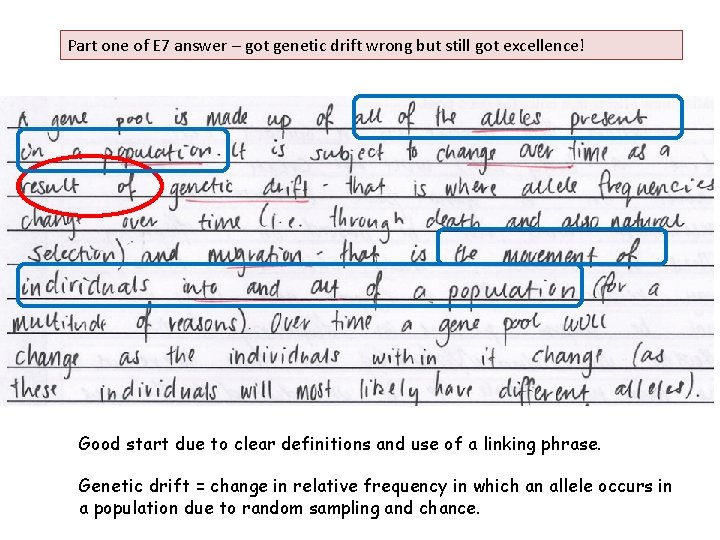 Part one of E7 answer – got genetic drift wrong but still got excellence!
A gene pool is made up of all of the alleles present
in a population. It is subject to change over time as a
result of genetic drift - that is where allele frequencies
change over time (i.e. through death and also natural
selection) and migration - that is the movement of
individuals into and out of a population (for a
multitude of reasons). Over time a gene pool will
change as the individuals within it change (as
these individuals will most likely have different alleles).
Good start due to clear definitions and use of a linking phrase.
Genetic drift = change in relative frequency in which an allele occurs in
a population due to random sampling and chance.